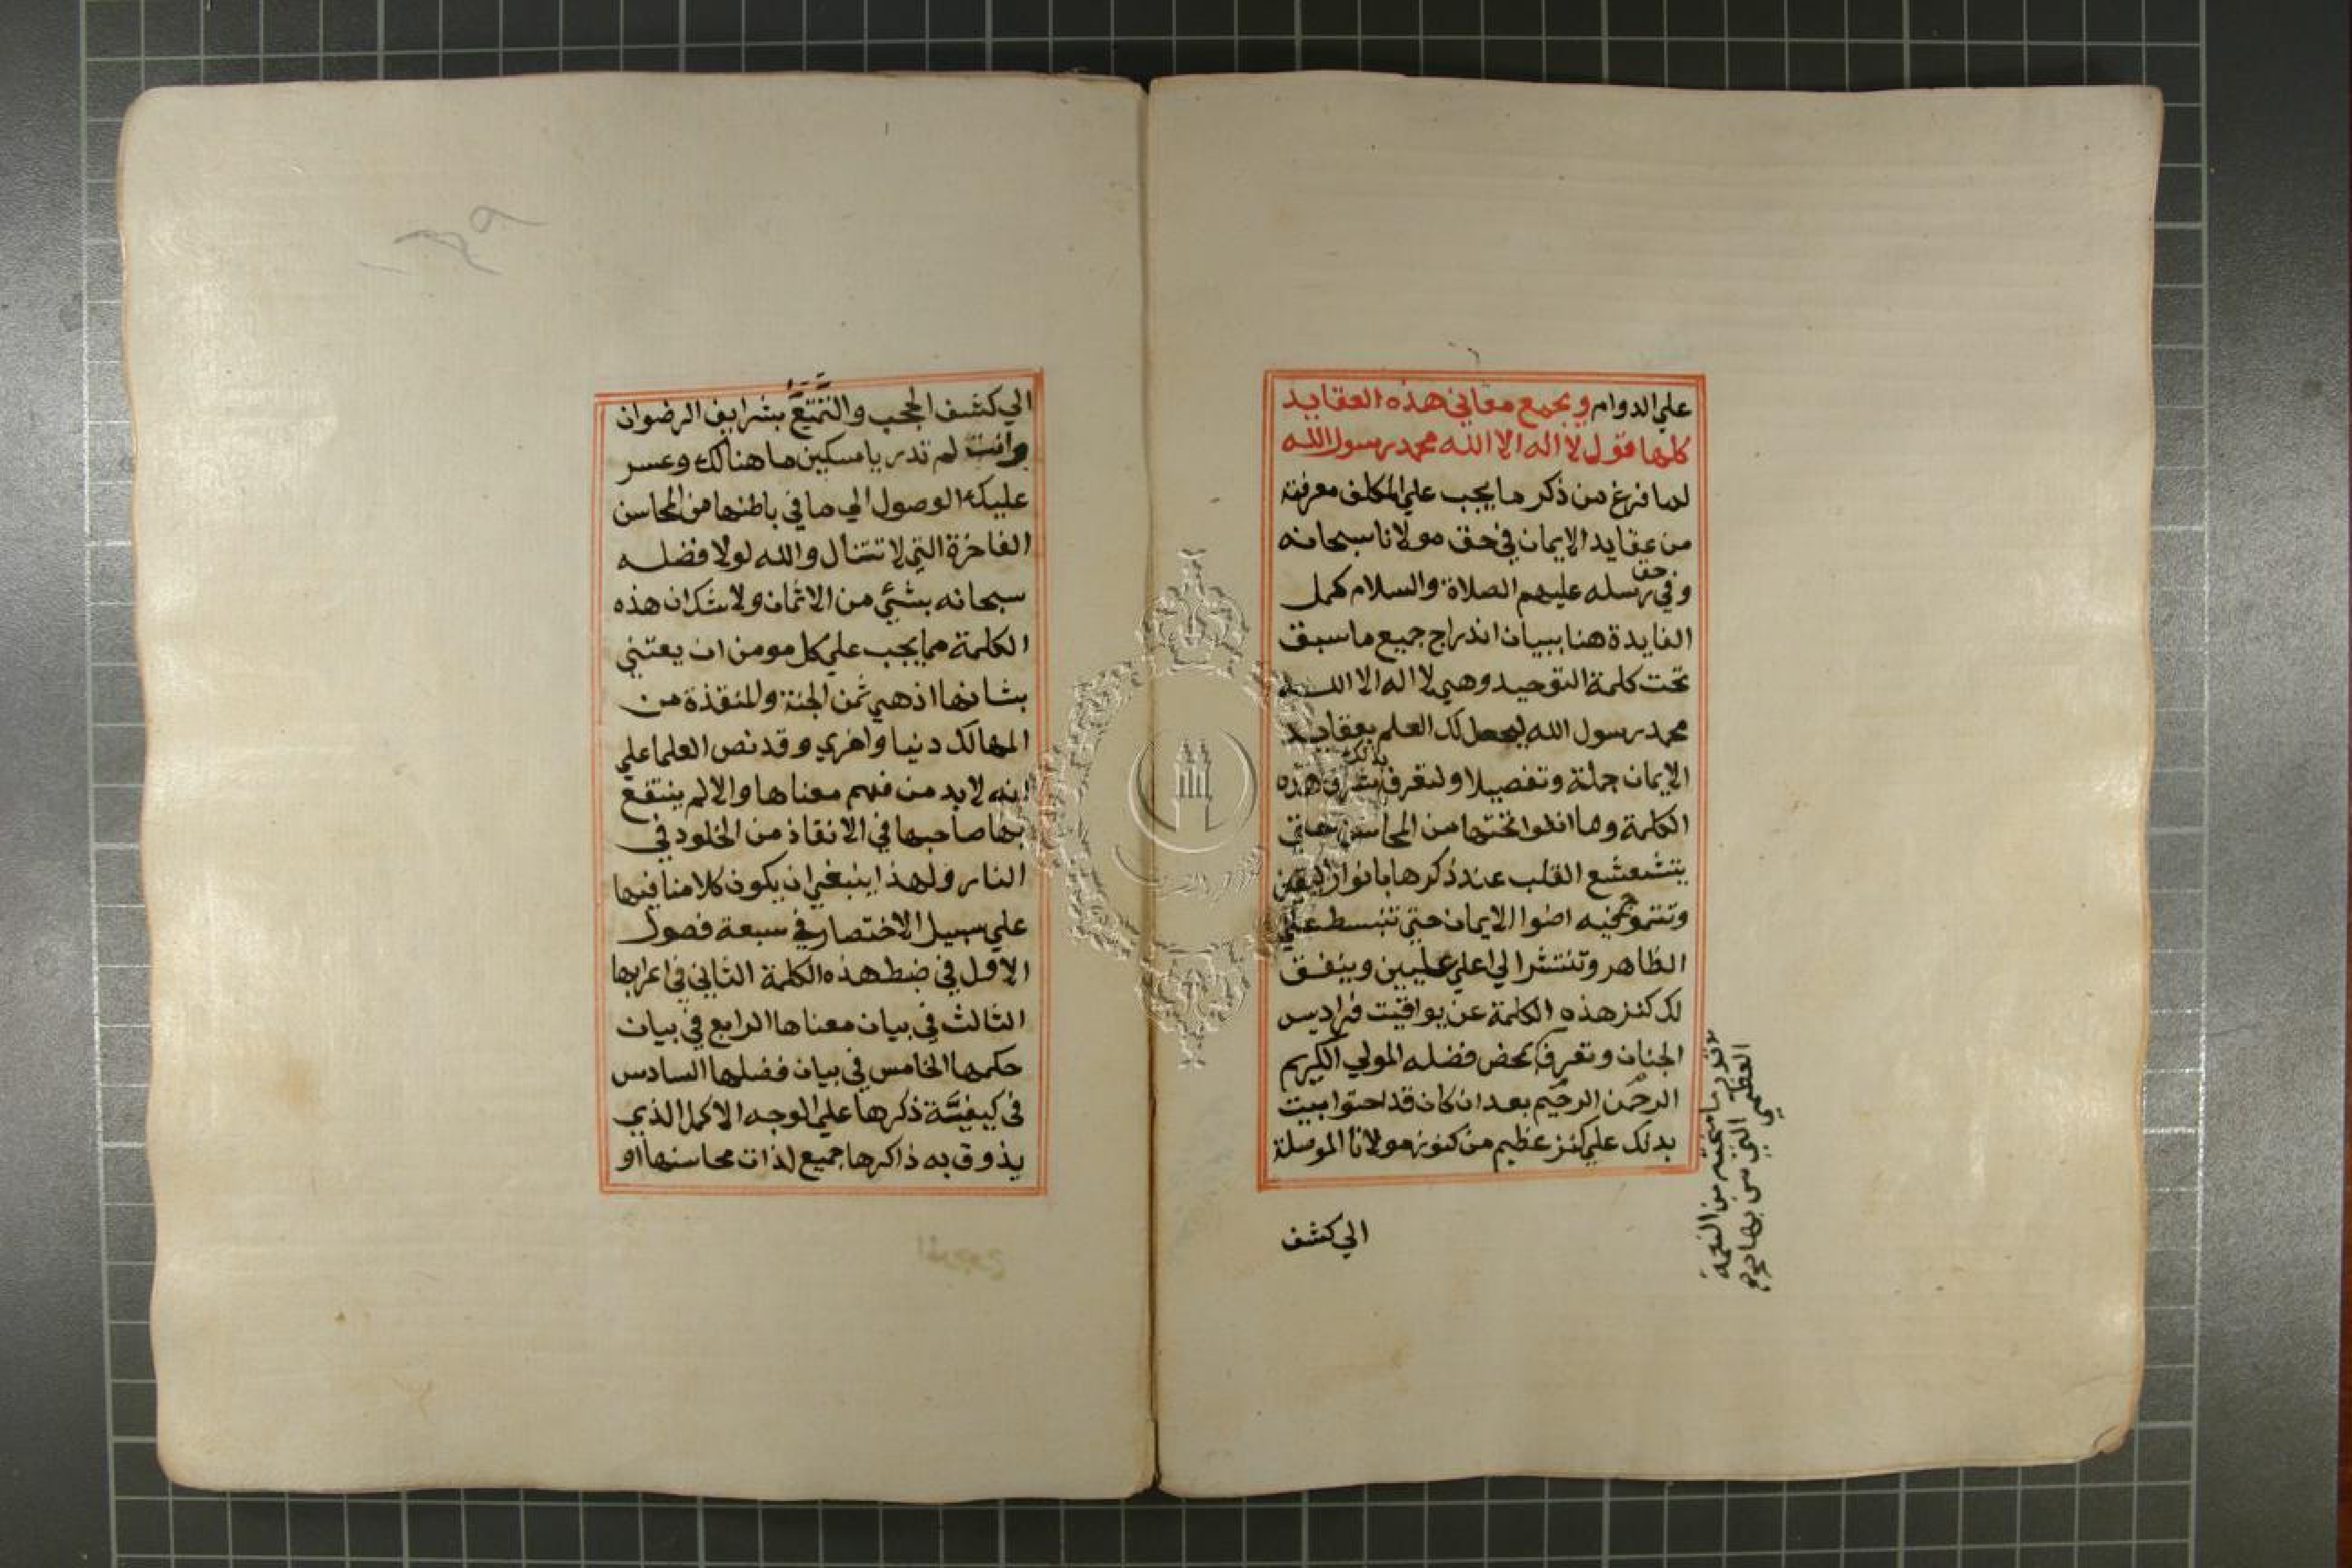 علي الدوام ويجمع معاني هذه العقايد
كلها قول لا اله الا الله محمد رسول الله
لما فرغ من ذكر ما يجب علي المكلف معرفته
من عقايد الايمان في حق مولانا سبحانه
وفي حق رسله عليهم الصلاة والسلام كمل
الفايدة هنا ببيان اندراج جميع ما سبق
تحت كلمة التوحيد وهي لا اله الا الله
محمد رسول الله ليحصل لك العلم بعقايد
الايمان جملة وتفصيلا ولتعرف بذلك شرف هذه
الكلمة وما انطوا تحتها من المحاسن حتي
يتشعشع القلب عند ذكرها بانوار اليقين
وتتموج فيه اضوا الايمان حتي تنبسط علي
الظاهر وتنتشر الي اعلي عليين وينفق
لك كنز هذه الكلمة عن يواقيت فراديس
الجنان وتعرف بمحض فضله المولي الكريم
الرحمن الرحيم بعد ان كان قد احتوا بيت
بدنك علي كنز عظيم من كنوز مولانا الموصلة
قدر ما منحته من النعمة
العظمي التي من بها
الي كشف
الي كشف الحجب والتمتع بشرايف الرضوان
وانت لم تدر يا مسكين ما هنالك وعسر
عليك الوصول الي ما في باطنها من المحاسن
الفاخرة التي لا تتنال والله لولا فضله
سبحانه بشيء من الاثمان ولا شك ان هذه
الكلمة مما يجب علي كل مومن ان يعتني
بشانها اذ هي ثمن الجنة والمنقذة من
المهالك دنيا واخري وقد نص العلما علي
انه لابد من فهم معناها والا لم ينتفع
بها صاحبها في الانقاذ من الخلود في
النار ولهذا ينبغي ان يكون كلامنا فيها
علي سبيل الاختصار في سبعة فصول
الاول في ضبط هذه الكلمة الثاني في اعرابها
الثالث في بيان معناها الرابع في بيان
حكمها الخامس في بيان فضلها السادس
في كيفية ذكرها علي الوجه الاكمل الذي
يذوق به ذاكرها جميع لذات محاسنها او